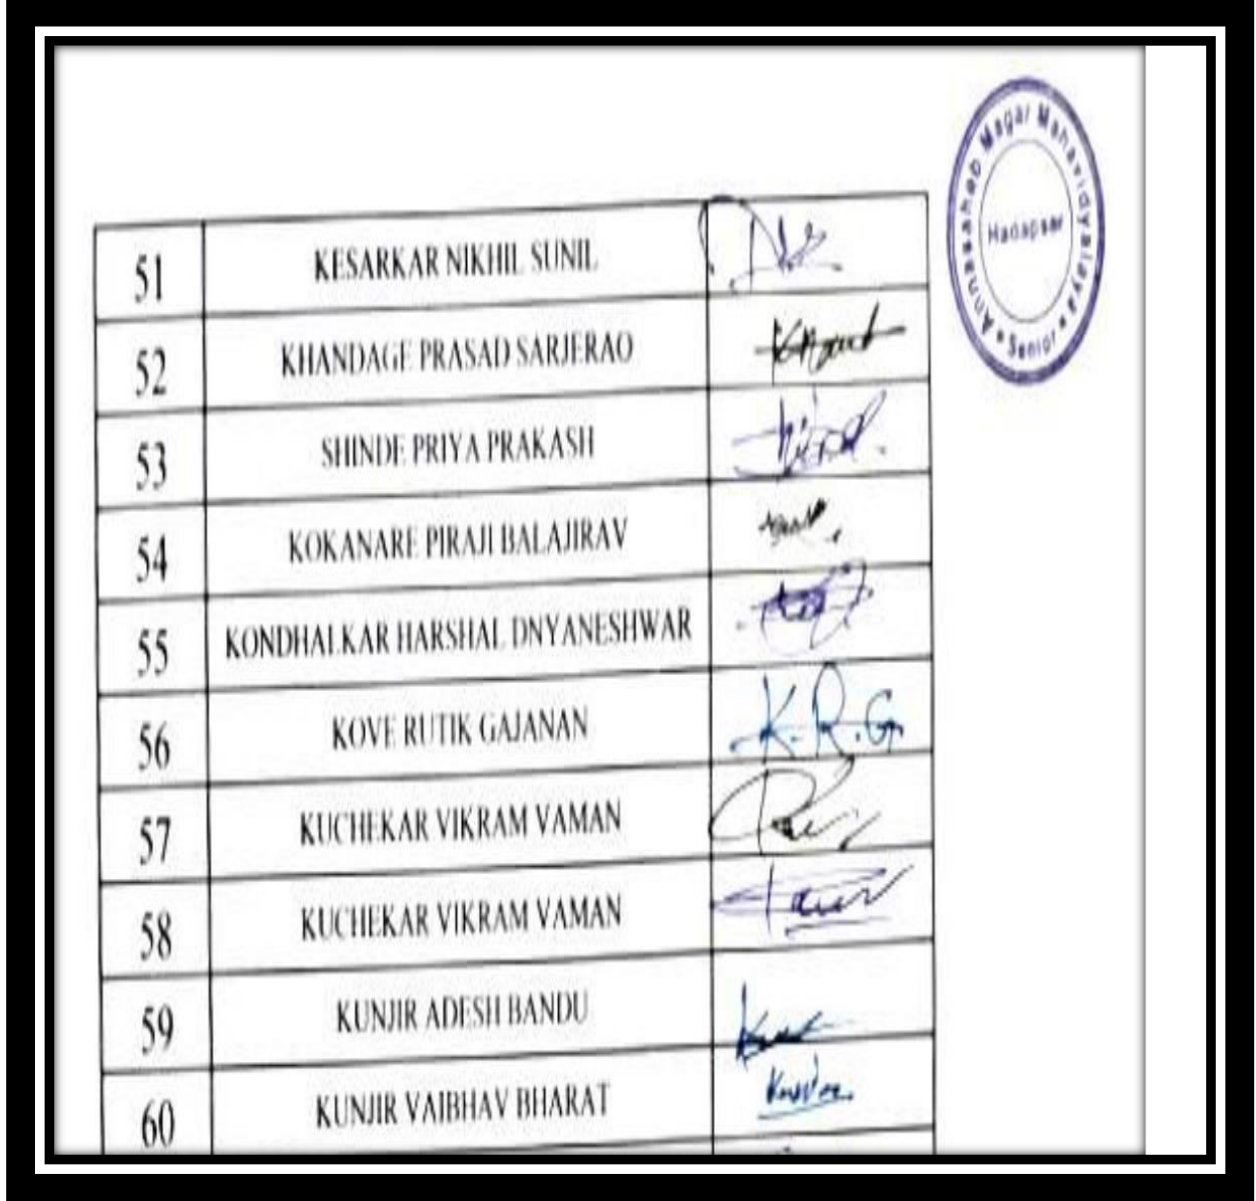 Annasaheb Magar Mahavidyalaya
Hadapsar
Senior
51 KESARKAR NIKHIL SUNIL
52 KHANDAGE PRASAD SARJERAO
53 SHINDE PRIYA PRAKASH
54 KOKANARE PIRAJI BALAJIRAV
55 KONDHALKAR HARSHAL DNYANESHWAR
56 KOVE RUTIK GAJANAN K.R.G.
57 KUCHEKAR VIKRAM VAMAN
58 KUCHEKAR VIKRAM VAMAN
59 KUNJIR ADESH BANDU
60 KUNJIR VAIBHAV BHARAT